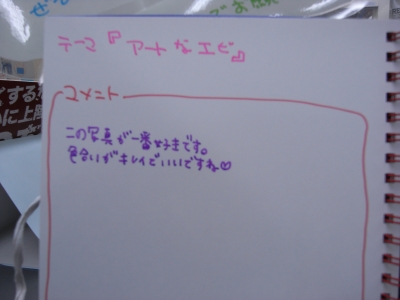 テーマ『アートなエビ』
コメント
この写真が一番好きです。
色合いがキレイでいいですね♡
する
に上